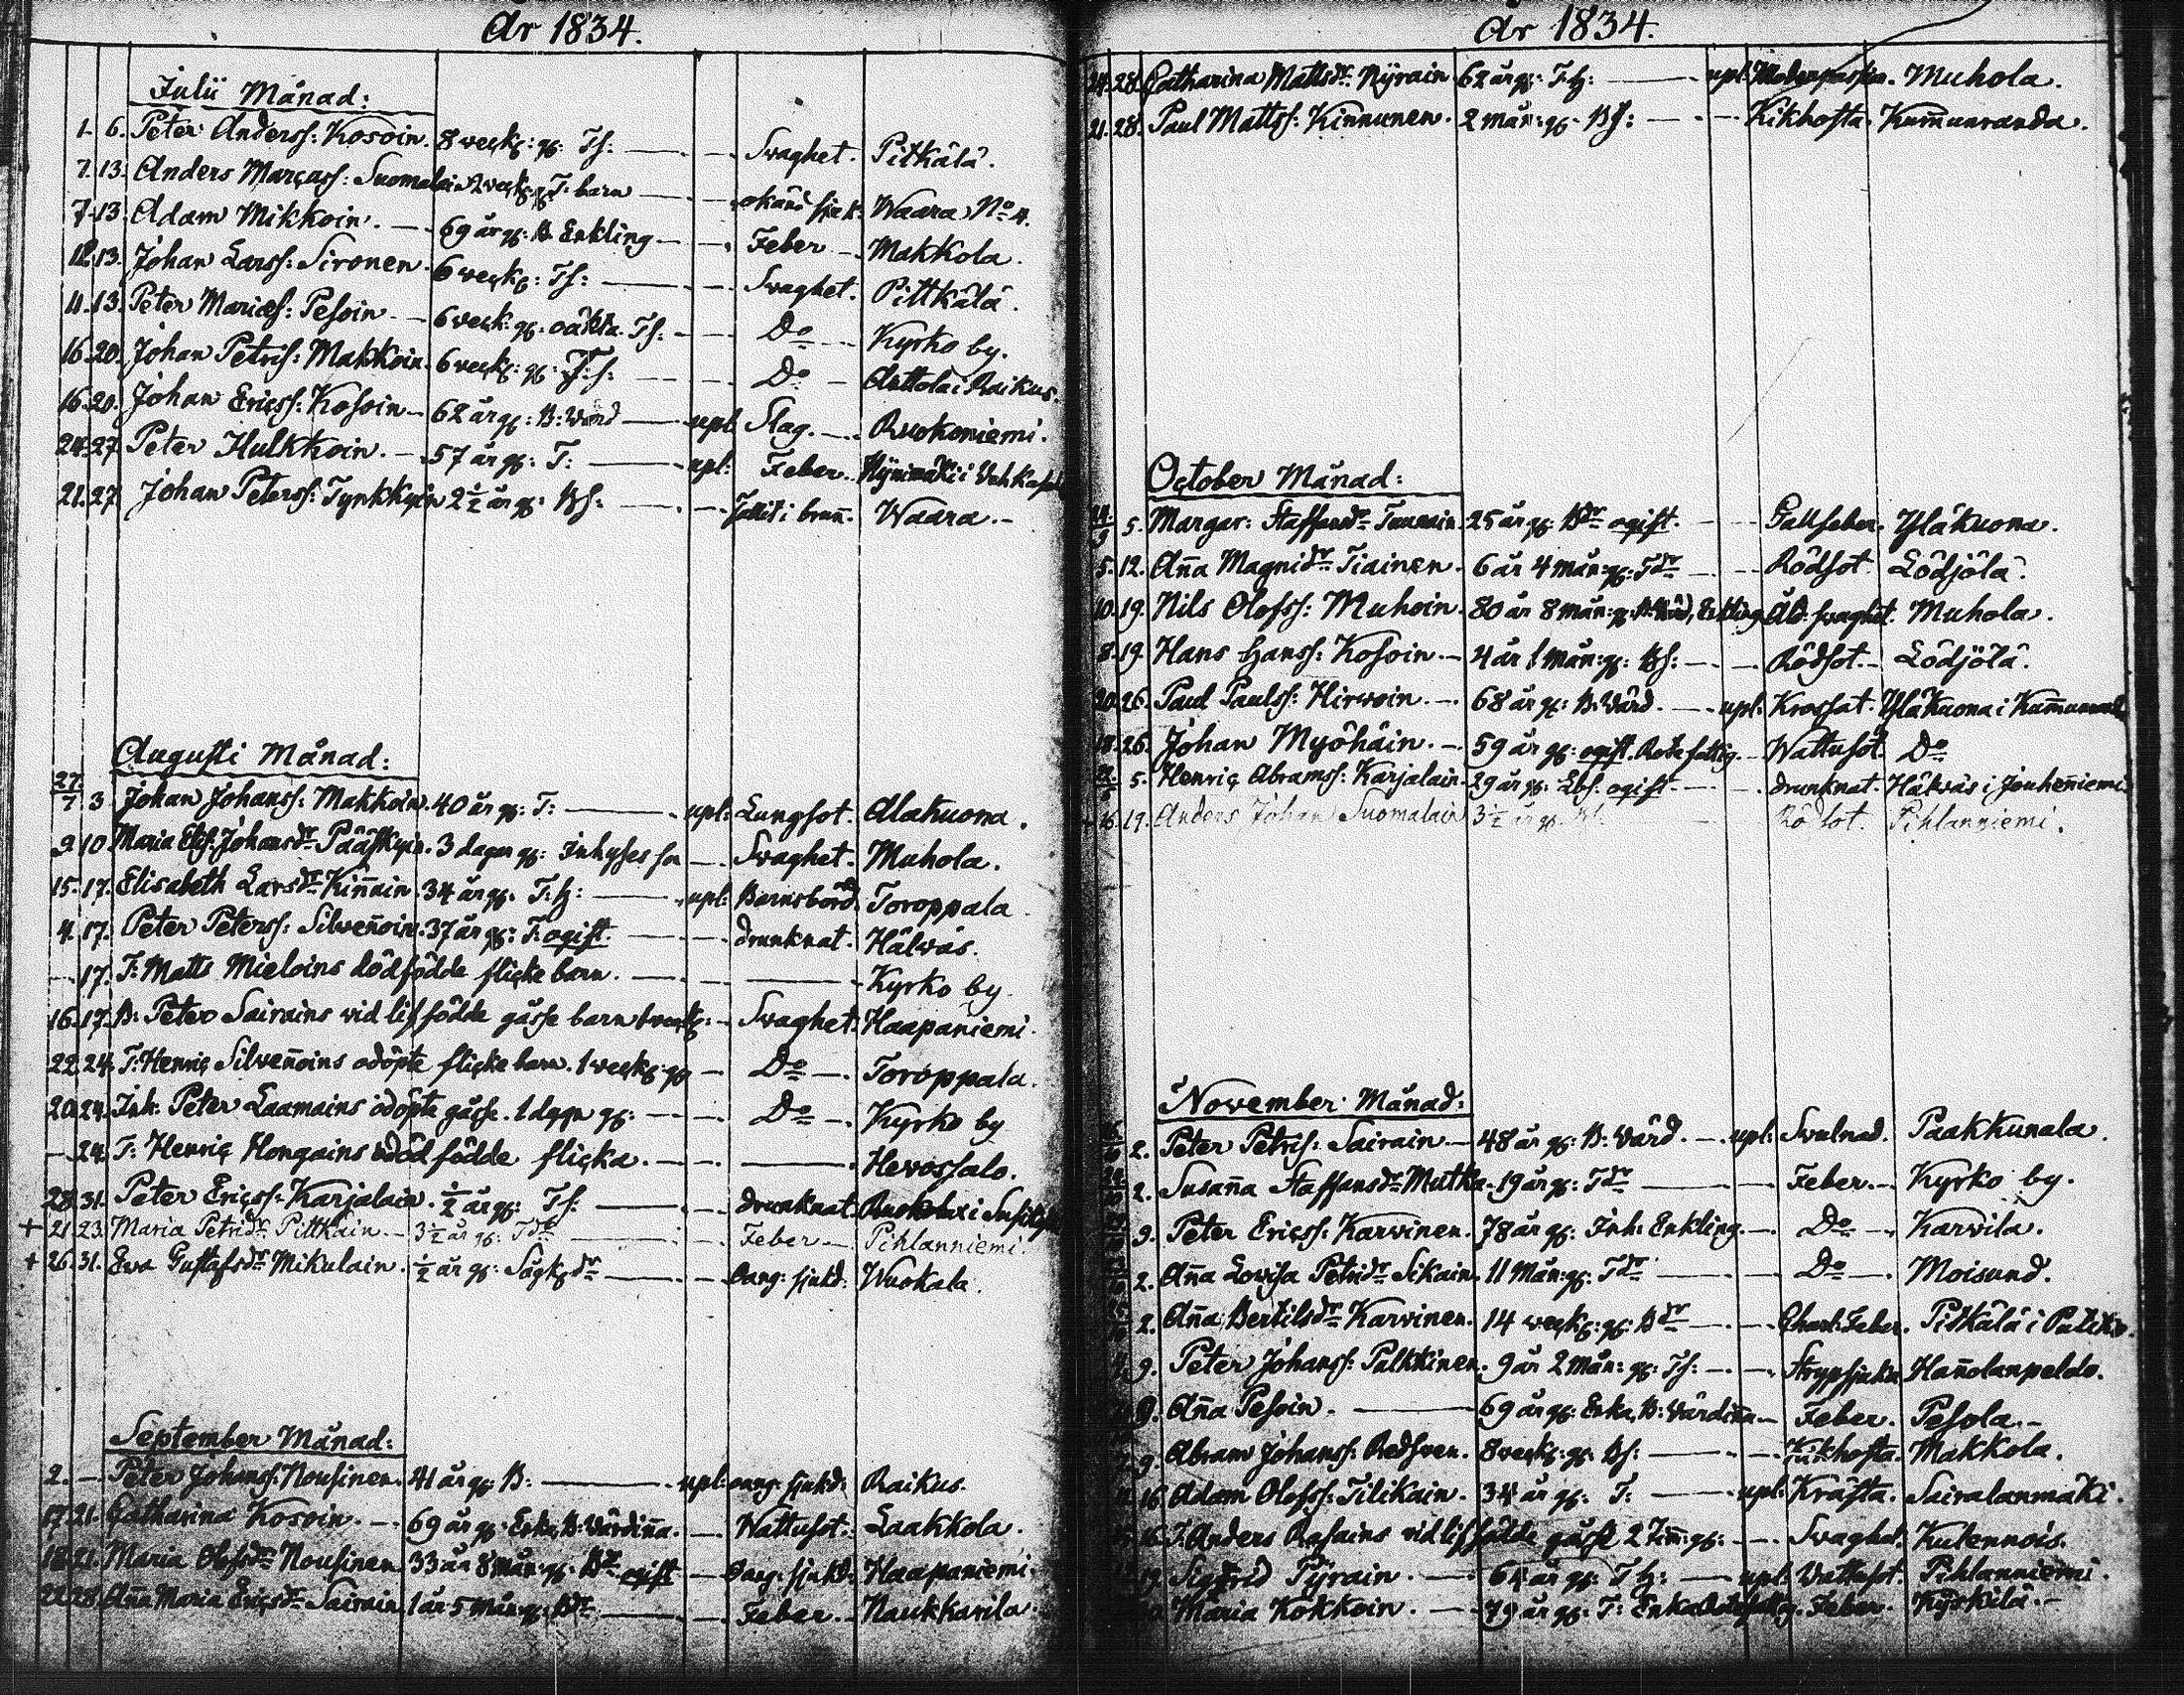 År 1834.
Julii Månad:
1. 6. Peter Anderss: Kosoin. 8 veck: gl: Ts: Svaghet. Pitkälä.
7. 13. Anders Marcuss: Suomalain 2 veck: gl: T: barn okänd sjuk: Waara No 4.
7. 13. Adam Mikkoin. 69 år gl: B. Enkling Feber Makkola.
12. 13. Johan Larss: Sironen. 6 veck: Ts: Svaghet. Pittkälä.
11. 13. Peter Mariæs: Pesoin. 6 veck: gl: oäkta. Ts: Do Kyrko by.
16. 20. Johan Petris: Makkoin. 6 veck: gl: T:s: Do Anttola i Raikus.
16. 20. Johan Ericss: Kosoin 62 år gl: B: Värd upl: Slag. Ruokoniemi.
24. 27. Peter Hulkkoin. 57 år gl: T: upl: Feber.
21. 27. Johan Peterss: Tynkkyin 2 1/2 år gl: Bs: Fallit i brunn. Waara.
Augusti Månad:
27/7 3. Johan Johanss: Makkoin. 40 år gl: T: upl: Lungsot. Alakuona.
9. 10. Maria Elis: Johansdr Pääskyin. 3 dagar gl: Inhyses Svaghet. Muhola.
15. 17. Elisabeth Larsdr Kinnain. 34 år gl: T:h: upl: Barnsbörd. Toroppala
4. 17. Peter Peterss: Silvennoin. 37 år gl: T: ogift. drunknat. Hälväs.
17. T: Matts Mieloins dödfödde flicke barn. Kyrko by
16. 17. B: Peter Sairains vid lif födde gåsse barn Svaghet. Haapaniemi.
22. 24. T: Henric Silvennoins odöpte flicke barn. 1 veck gl Do Toroppala.
20. 24. Inh: Peter Laamains odöpte gåsse. 1 dygn gl: Do Kyrko by
24. T: Henric Hongains död födde flicka. Hevossalo.
28. 31. Peter Ericss: Karjalain. 1/2 år gl: Ts: drunknat
+ 21. 23. Maria Petridr Pittkäin 3 1/2 år gl: Tdr Feber Pihlanniemi.
+ 26. 31. Eva Gustafsdr Mikulain. 1/2 år gl: dr Oang: sjukd: Wuokala.
September Månad:
2. Peter Johanss: Nousinen. 41 år gl: B: upl: oang: sjukd: Raikus.
17. 21. Catharina Kosoin. 69 år gl: Enka, B: Värdinna. Wattusot. Laakkola.
18. 21. Maria Olofsdr Nousinen 33 år 8 mån: gl: Bdr ogift Oang: sjukd: Haapaniemi.
22. 28. Anna Maria Ericsdr Sairain 1 år 5 mån gl: Bdr Feber. Naukkarila.
År 1834.
24. 28. Catharina Mattsdr Nyrain. 62 år gl: T:h: upl: Muhola.
21. 28. Paul Mattss: Kinnunen. 2 mån: gl: Bs: Kikhosta. Kummunranda.
October Månad:
5. Margar: Staffansdr 25 år gl: Bdr ogift. Gallfeber. Yläkuona.
5. 12. Anna Magnidr Tiainen. 6 år 4 mån: gl: Tdr Rödsot. Lödjölä.
10. 19. Nils Olofss: Muhoin. 80 år 8 mån: gl: B: Värd, Enkling Åld: svaghet. Muhola.
8. 19. Hans Hanss: Kosoin. 4 år 1 mån: gl: Bs: Rödsot. Lödjölä.
20. 26. Paul Paulss: Hirvoin. 68 år gl: B: Värd. upl: Yläkuona i
18. 26. Johan Myöhäin. 59 år gl: ogift. Rotefattig. Wattusot. Do
5. Henric Abramss: Karjalain. 29 år gl: ogift. drunknat. Hälväs i Jouhenniemi
+ 16. 19. Anders Johans Suomalain 3 1/2 år gl: Rödsot. Pihlanniemi.
November Månad:
2. Peter Petris: Sairain 48 år gl: B: Värd. upl: Svulnad. Paakkunala.
2. Susanna Staffansdr Mutka. 19 år gl: Tdr Feber. Kyrko by.
9. Peter Ericss: Karvinen. 78 år gl: Inh: Enkling. Do Karvila.
2. Anna Lovisa Petridr Sikain. 11 mån: gl: Tdr Do Moisund.
2. Anna Bertilsdr Karvinen. 14 veck: gl: Bdr Feber. Pitkälä i
9. Peter Johanss: Pulkkinen. 9 år 2 mån: gl: Ts: Strypsjuka Hannolanpeldo.
9. Anna Pesoin. 69 år gl: Enka, B: Värdinna Feber. Pesola.
9. Abram Johanss: Redsven. 8 veck: gl: Bs: Kikhosta. Makkola.
16. Adam Olofss: Tilikain. 34 år gl: T: upl: Kräfta. Sairalanmäki.
16. T: Anders Rasains vid lif födde gåsse 2 Tim: gl: Svaghet. Kutennois.
19. Sigfrid Pyrain. 64 år gl: T h: upl: Wattusot. Pihlanniemi.
Maria Kokkoin. 79 år gl: T: Enka Rotefattig. Feber. Kyrkilä.